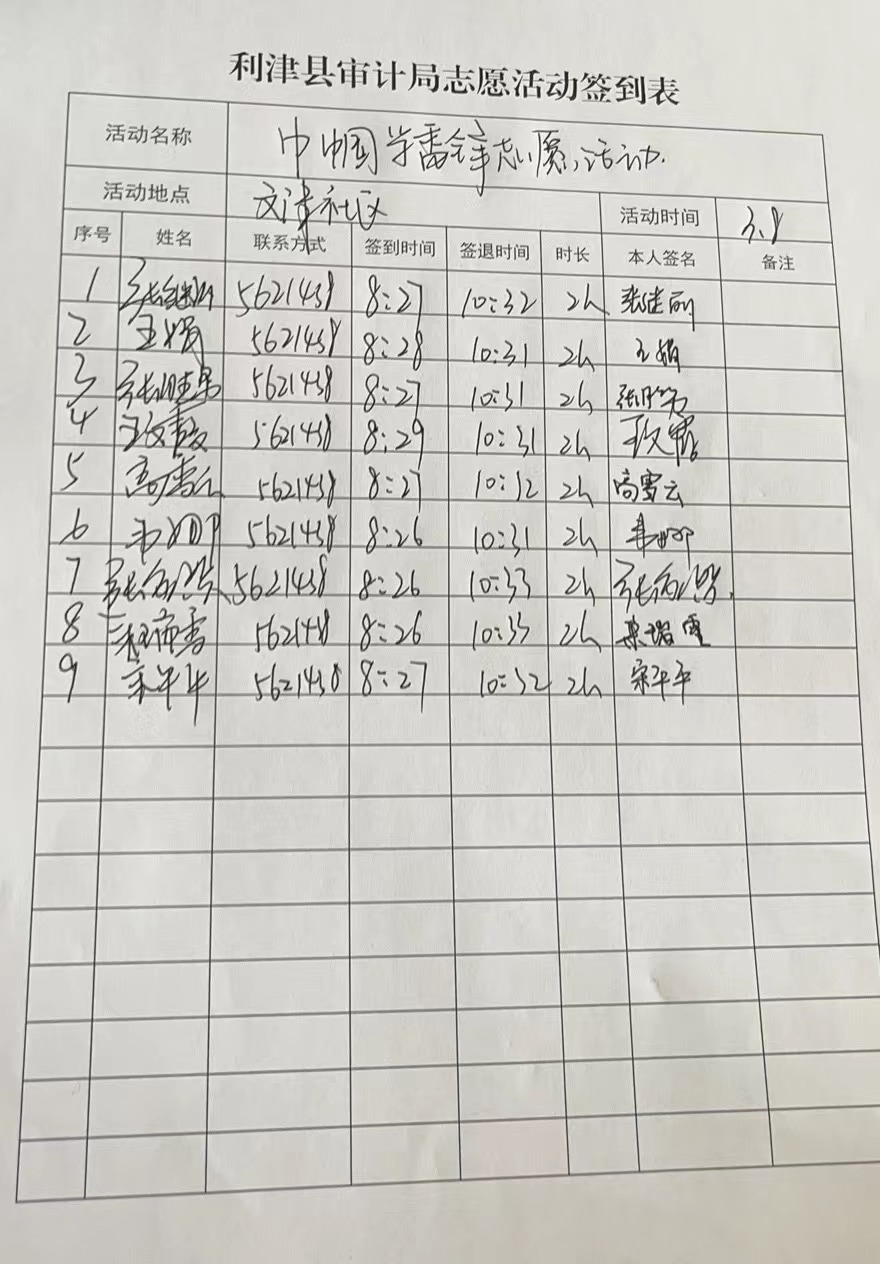 利津县审计局志愿活动签到表
活动名称 巾帼学雷锋志愿活动
活动地点 文津社区 活动时间 3.8
序号 姓名 联系方式 签到时间 签退时间 时长 本人签名 备注
1 张继丽 5621438 8:27 10:32 2h 张继丽
2 王娟 5621438 8:28 10:31 2h 王娟
3 5621438 8:27 10:31 2h
4 5621438 8:29 10:31 2h
5 高雪云 5621438 8:27 10:32 2h 高雪云
6 5621438 8:26 10:31 2h
7 5621438 8:26 10:33 2h
8 562148 8:26 10:33 2h
9 宋平平 5621438 8:27 10:32 2h 宋平平